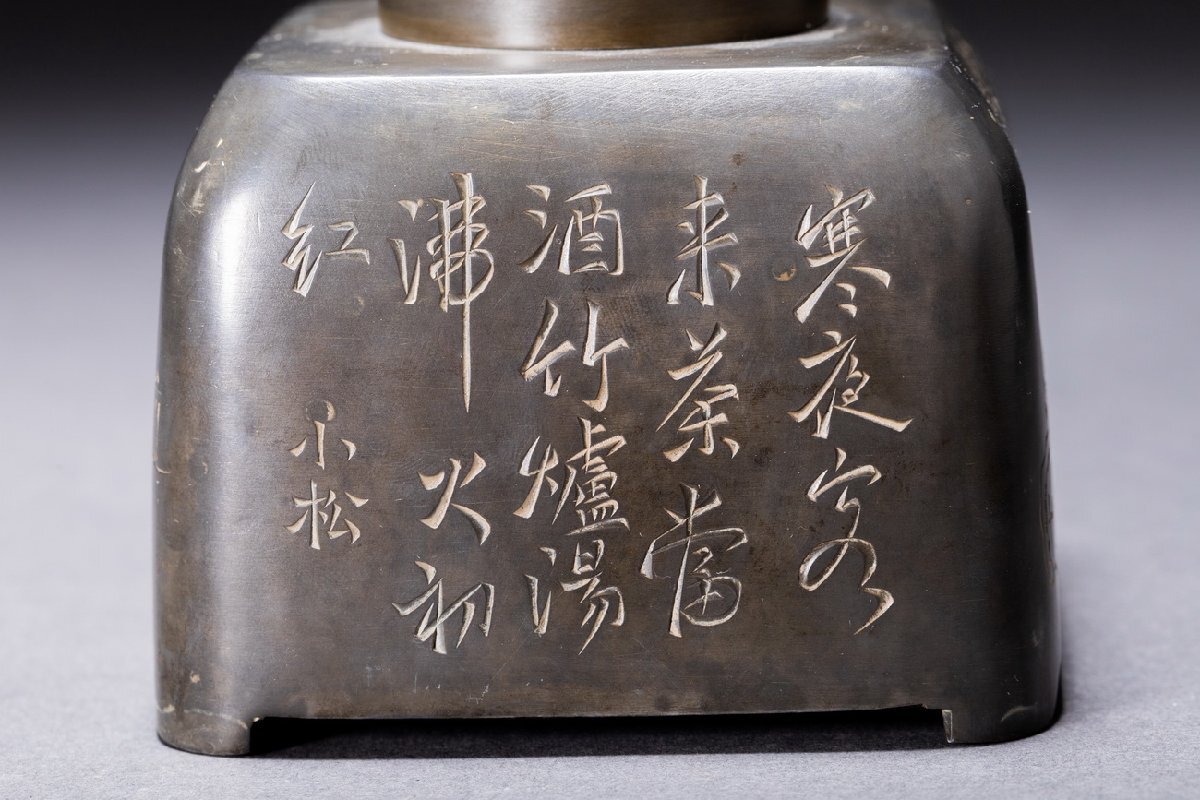 寒夜客
来茶當
酒竹爐湯
沸火初
紅
小松